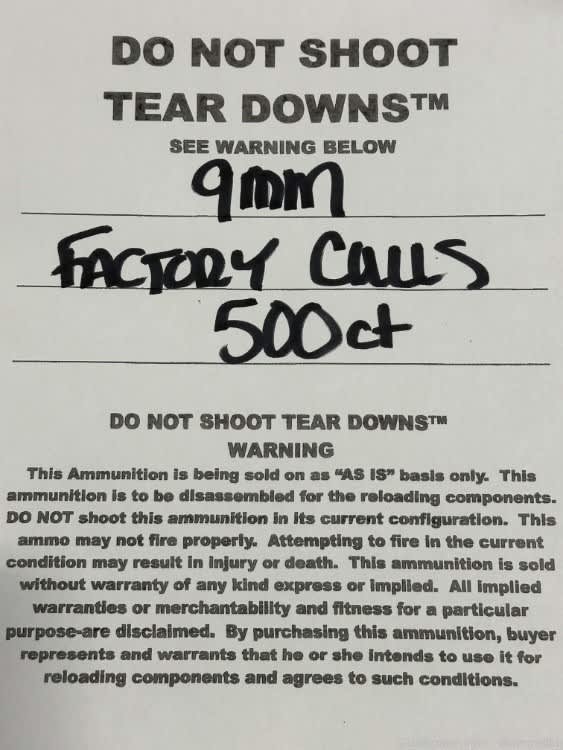 DO NOT SHOOT
TEAR DOWNS™
SEE WARNING BELOW
9mm
FACTORY CULLS
500ct
DO NOT SHOOT TEAR DOWNS™
WARNING
This Ammunition is being sold on as “AS IS” basis only. This
ammunition is to be disassembled for the reloading components.
DO NOT shoot this ammunition in its current configuration. This
ammo may not fire properly. Attempting to fire in the current
condition may result in injury or death. This ammunition is sold
without warranty of any kind express or implied. All implied
warranties or merchantability and fitness for a particular
purpose-are disclaimed. By purchasing this ammunition, buyer
represents and warrants that he or she intends to use it for
reloading components and agrees to such conditions.